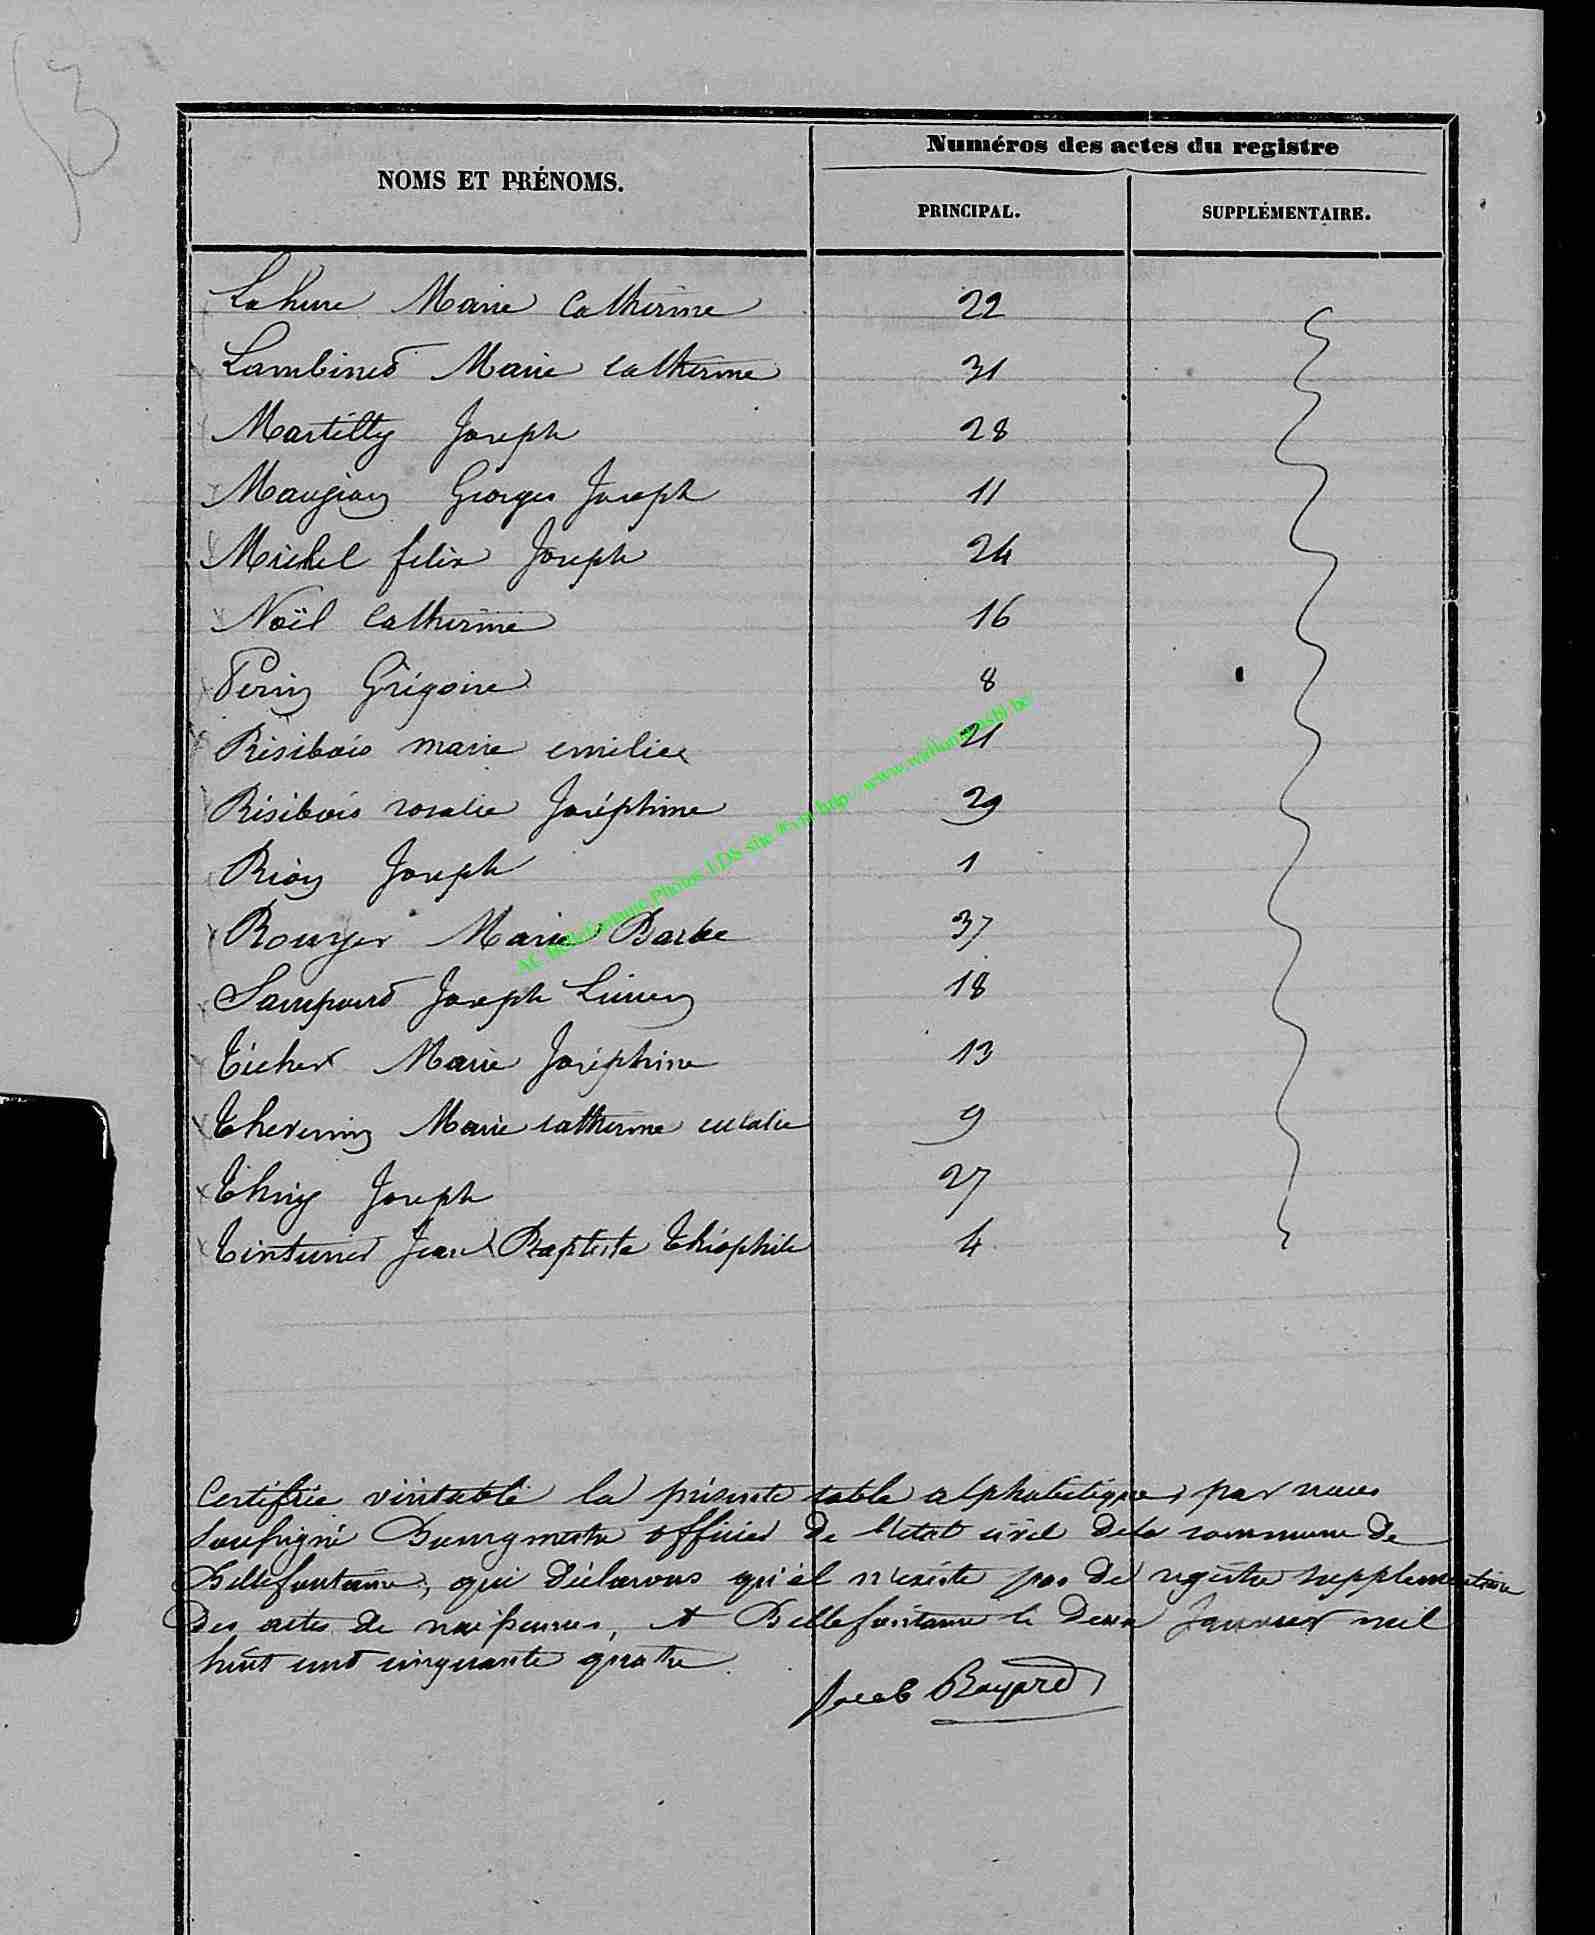 53
Numéros des actes du registre
NOMS ET PRÉNOMS.
PRINCIPAL. SUPPLÉMENTAIRE.
Lahure Marie Catherine 22
Lambinet Marie catherine 31
Martilly Joseph 28
Maugian Georges Joseph 11
Michel felix Joseph 24
Noël Catherine 16
Perin Grégoire 8
Résibois marie emilie 21
Résibois rosalie Joséphine 29
Rion Joseph 1
Rouyer Marie Barbe 37
Sampont Joseph Lucien 18
Técher Marie Joséphine 13
Thevenin Marie catherine eulalie 9
Thiry Joseph 27
Tinturier Jean Baptiste Théophile 4
Certifiée véritable la présente table alphabétique, par nous
soussigné Bourgmestre officier de l'état civil dela commune de
Bellefontaine, qui déclarons qu'il n'existe pas de registre supplementaire
des actes de naissances, A Bellefontaine le deux Janvier mil
huit cent cinquante quatre
Jacob Bayard